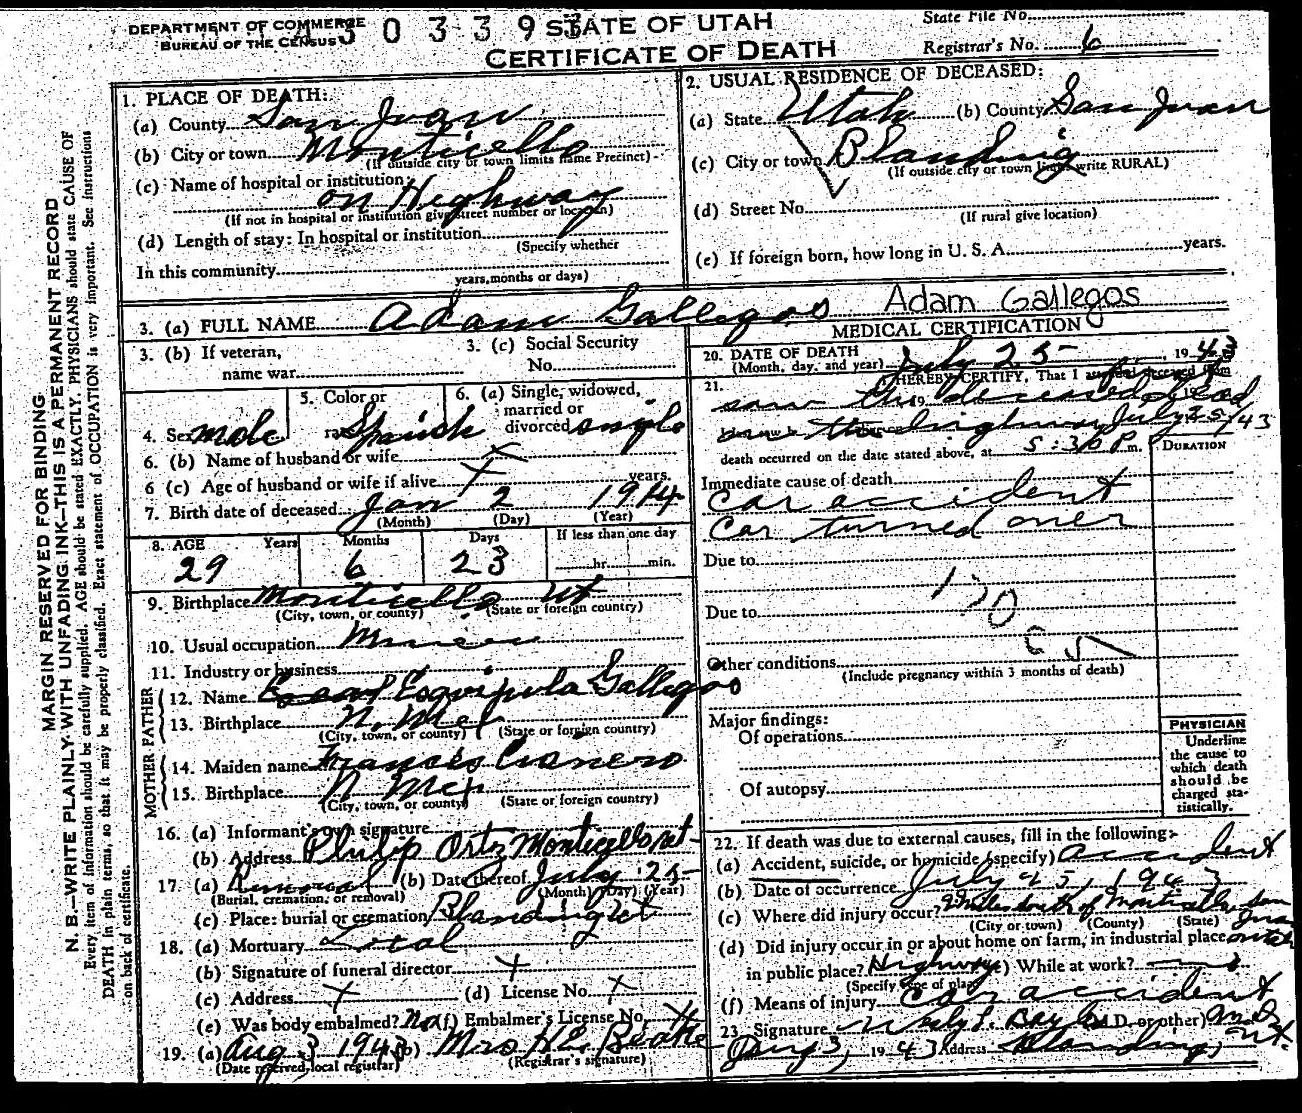 DEPARTMENT OF COMMERCE
BUREAU OF THE CENSUS
43 0 3 3 9 3
STATE OF UTAH
CERTIFICATE OF DEATH
State File No.
Registrar's No. 6
MARGIN RESERVED FOR BINDING
N. B.—WRITE PLAINLY WITH UNFADING INK—THIS IS A PERMANENT RECORD
Every item of information should be carefully supplied. AGE should be stated EXACTLY. PHYSICIANS should state CAUSE OF
DEATH in plain terms, so that it may be properly classified. Exact statement of OCCUPATION is very important. See instructions
on back of certificate.
1. PLACE OF DEATH:
(a) County San Juan
(b) City or town Monticello
(If outside city or town limits name Precinct)
(c) Name of hospital or institution:
on Highway
(If not in hospital or institution give street number or location)
(d) Length of stay: In hospital or institution
(Specify whether
In this community
years, months or days)
2. USUAL RESIDENCE OF DECEASED:
(a) State Utah (b) County San Juan
(c) City or town Blanding
(If outside city or town limits write RURAL)
(d) Street No.
(If rural give location)
(e) If foreign born, how long in U. S. A. years.
3. (a) FULL NAME Adam Gallegos Adam Gallegos
3. (b) If veteran,
name war
3. (c) Social Security
No.
4. Sex male
5. Color or
race Spanish
6. (a) Single, widowed,
married or
divorced single
6. (b) Name of husband or wife x
6 (c) Age of husband or wife if alive x years.
7. Birth date of deceased Jan 2 1914
(Month) (Day) (Year)
8. AGE Years Months Days If less than one day
29 6 23 hr. min.
9. Birthplace Monticello Ut
(City, town, or county) (State or foreign country)
10. Usual occupation
11. Industry or business
MOTHER FATHER
12. Name Esquipula Gallegos
13. Birthplace N. Mex
(City, town, or county) (State or foreign country)
14. Maiden name
15. Birthplace N Mex
(City, town, or county) (State or foreign country)
16. (a) Informant's own signature
(b) Address Philip Ortz Monticello Ut
17. (a) Removal (b) Date thereof July 25
(Burial, cremation, or removal) (Month) (Day) (Year)
(c) Place: burial or cremation Blanding Ut
18. (a) Mortuary Local
(b) Signature of funeral director x
(c) Address x (d) License No. x
(e) Was body embalmed? No (f) Embalmer's License No. x
19. (a) Aug 3 1943 (b) Mrs H E
(Date received local registrar) (Registrar's signature)
MEDICAL CERTIFICATION
20. DATE OF DEATH
(Month, day, and year) July 25 , 1943
21. I HEREBY CERTIFY, That I
saw the deceased dead
on the highway July 25/43
death occurred on the date stated above, at 5:30 P m.
DURATION
Immediate cause of death
Car accident
Car turned over
Due to
170
Due to
Other conditions
(Include pregnancy within 3 months of death)
Major findings:
Of operations
Of autopsy
PHYSICIAN
Underline
the cause to
which death
should be
charged sta-
tistically.
22. If death was due to external causes, fill in the following:
(a) Accident, suicide, or homicide (specify) accident
(b) Date of occurrence July 25, 1943
(c) Where did injury occur? Miles south of Monticello San Juan
(City or town) (County) (State)
(d) Did injury occur in or about home on farm, in industrial place
in public place? Highway While at work?
(Specify type of place)
(f) Means of injury car accident
23 Signature (M.D. or other)
3, 1943 Address Blanding, Ut.